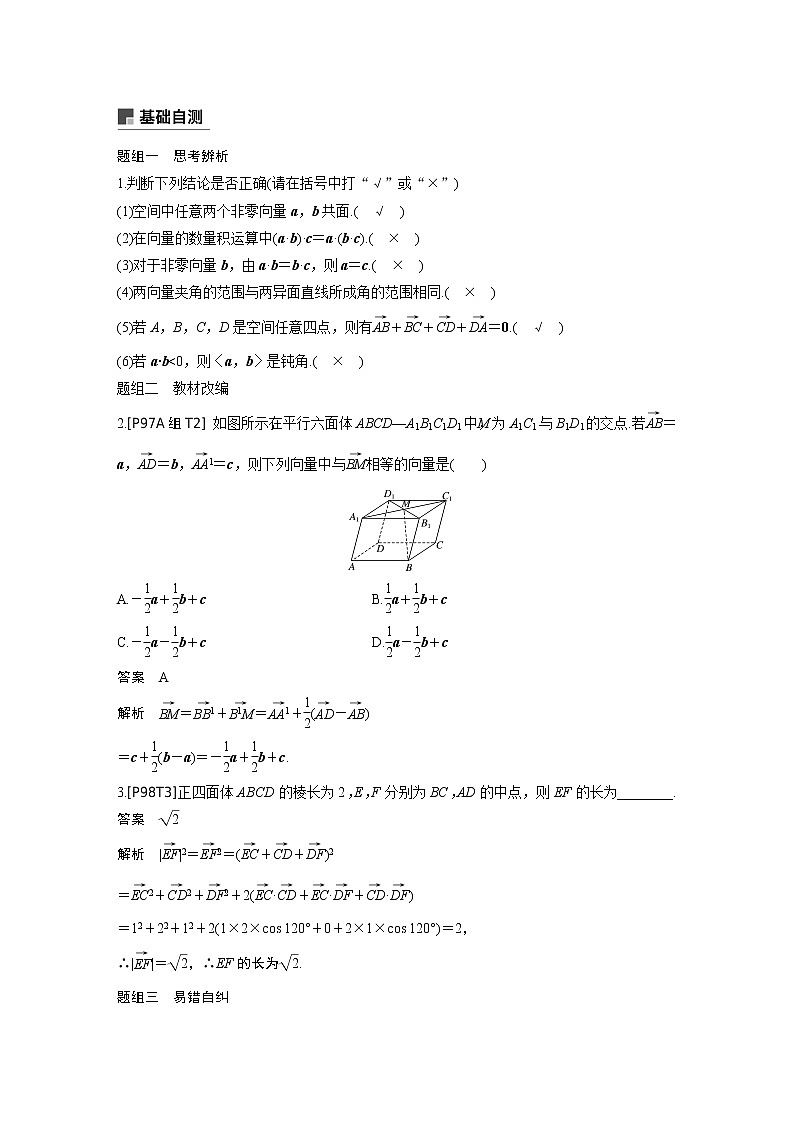 基础自测
题组一　思考辨析
1.判断下列结论是否正确(请在括号中打“√”或“×”)
(1)空间中任意两个非零向量a，b共面.(　√　)
(2)在向量的数量积运算中(a·b)·c＝a·(b·c).(　×　)
(3)对于非零向量b，由a·b＝b·c，则a＝c.(　×　)
(4)两向量夹角的范围与两异面直线所成角的范围相同.(　×　)
(5)若A，B，C，D是空间任意四点，则有\overrightarrow{AB}＋\overrightarrow{BC}＋\overrightarrow{CD}＋\overrightarrow{DA}＝0.(　√　)
(6)若a·b<0，则〈a，b〉是钝角.(　×　)
题组二　教材改编
2.[P97A组T2] 如图所示在平行六面体ABCD—A₁B₁C₁D₁中,M为A₁C₁与B₁D₁的交点.若\overrightarrow{AB}＝
a，\overrightarrow{AD}＝b，\overrightarrow{AA}1＝c，则下列向量中与\overrightarrow{BM}相等的向量是(　　)
D₁ C₁
M
A₁ B₁
D C
A B
A.－\frac{1}{2}a＋\frac{1}{2}b＋c　B.\frac{1}{2}a＋\frac{1}{2}b＋c
C.－\frac{1}{2}a－\frac{1}{2}b＋c　D.\frac{1}{2}a－\frac{1}{2}b＋c
答案　A
解析　\overrightarrow{BM}＝\overrightarrow{BB}1＋\overrightarrow{B1M}＝\overrightarrow{AA}1＋\frac{1}{2}(\overrightarrow{AD}－\overrightarrow{AB})
＝c＋\frac{1}{2}(b－a)＝－\frac{1}{2}a＋\frac{1}{2}b＋c.
3.[P98T3]正四面体ABCD的棱长为2,E,F分别为BC,AD的中点，则EF的长为________.
答案　\sqrt{2}
解析　|\overrightarrow{EF}|2＝\overrightarrow{EF}2＝(\overrightarrow{EC}＋\overrightarrow{CD}＋\overrightarrow{DF})2
＝\overrightarrow{EC}2＋\overrightarrow{CD}2＋\overrightarrow{DF}2＋2(\overrightarrow{EC}·\overrightarrow{CD}＋\overrightarrow{EC}·\overrightarrow{DF}＋\overrightarrow{CD}·\overrightarrow{DF})
＝1²＋2²＋1²＋2(1×2×cos 120°＋0＋2×1×cos 120°)＝2，
∴|\overrightarrow{EF}|＝\sqrt{2}，∴EF的长为\sqrt{2}.
题组三　易错自纠